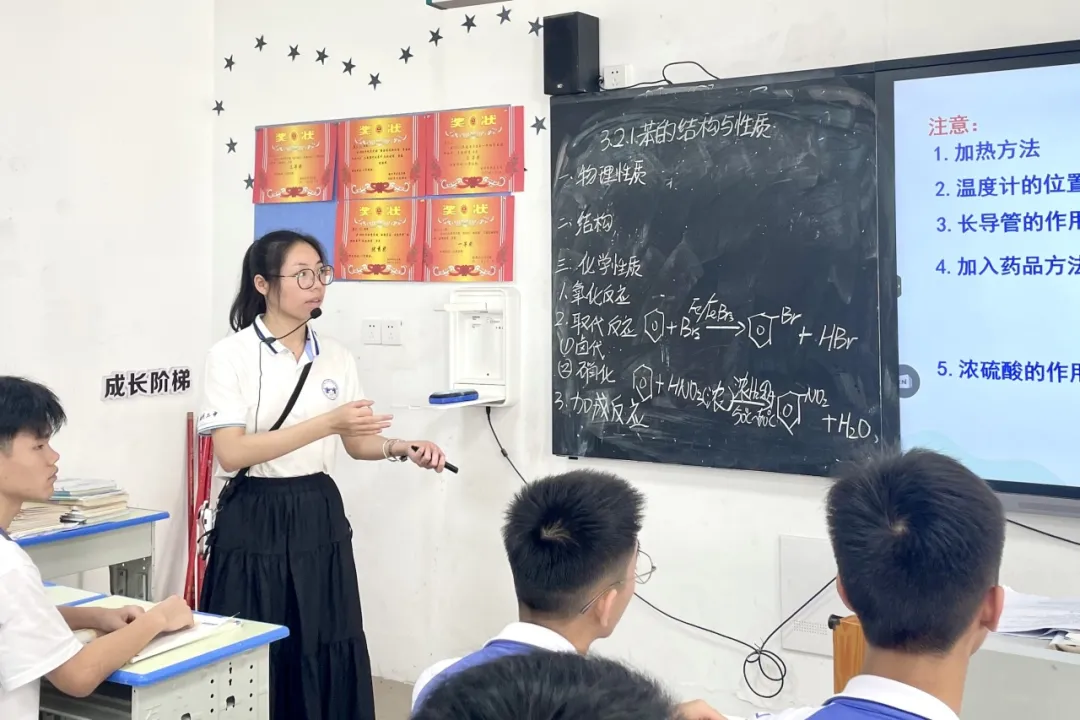 奖 状
奖 状
奖 状
奖 状
奖 状
成长阶梯
3.2.1 苯的结构与性质
一.物理性质
二.结构
三.化学性质
1.氧化反应
2.取代反应 + Br₂ Fe/FeBr₃ → Br + HBr
①卤代
②硝化 + HNO₃(浓) 浓H₂SO₄ 50℃-60℃ NO₂ + H₂O
3.加成反应
注意：
1. 加热方法
2. 温度计的位置
3. 长导管的作用
4. 加入药品方法
5. 浓硫酸的作用